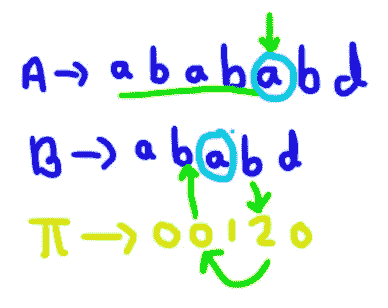 A → a b a b a b d
B → a b a b d
π → 0 0 1 2 0